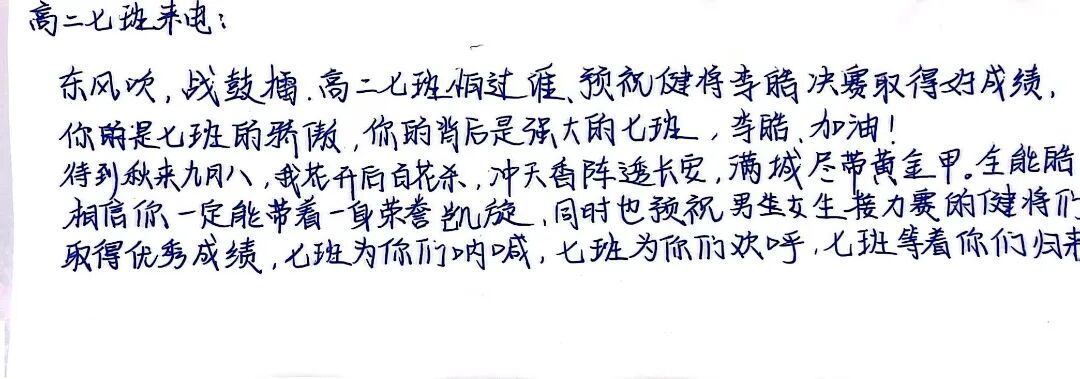 高二七班来电：
东风吹，战鼓擂．高二七班怕过谁、预祝健将李皓决赛取得好成绩，
你的是七班的骄傲，你的背后是强大的七班，李皓、加油！
待到秋来九月八，我花开后百花杀，冲天香阵透长安，满城尽带黄金甲。全能皓
相信你一定能带着一身荣誉凯旋，同时也预祝男生女生接力赛的健将们
取得优秀成绩，七班为你们呐喊，七班为你们欢呼，七班等着你们归来